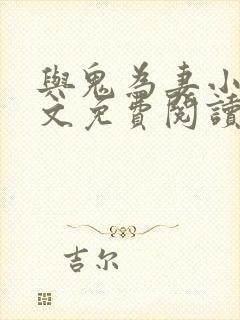 與鬼為妻小
文免費閱讀
吉尔